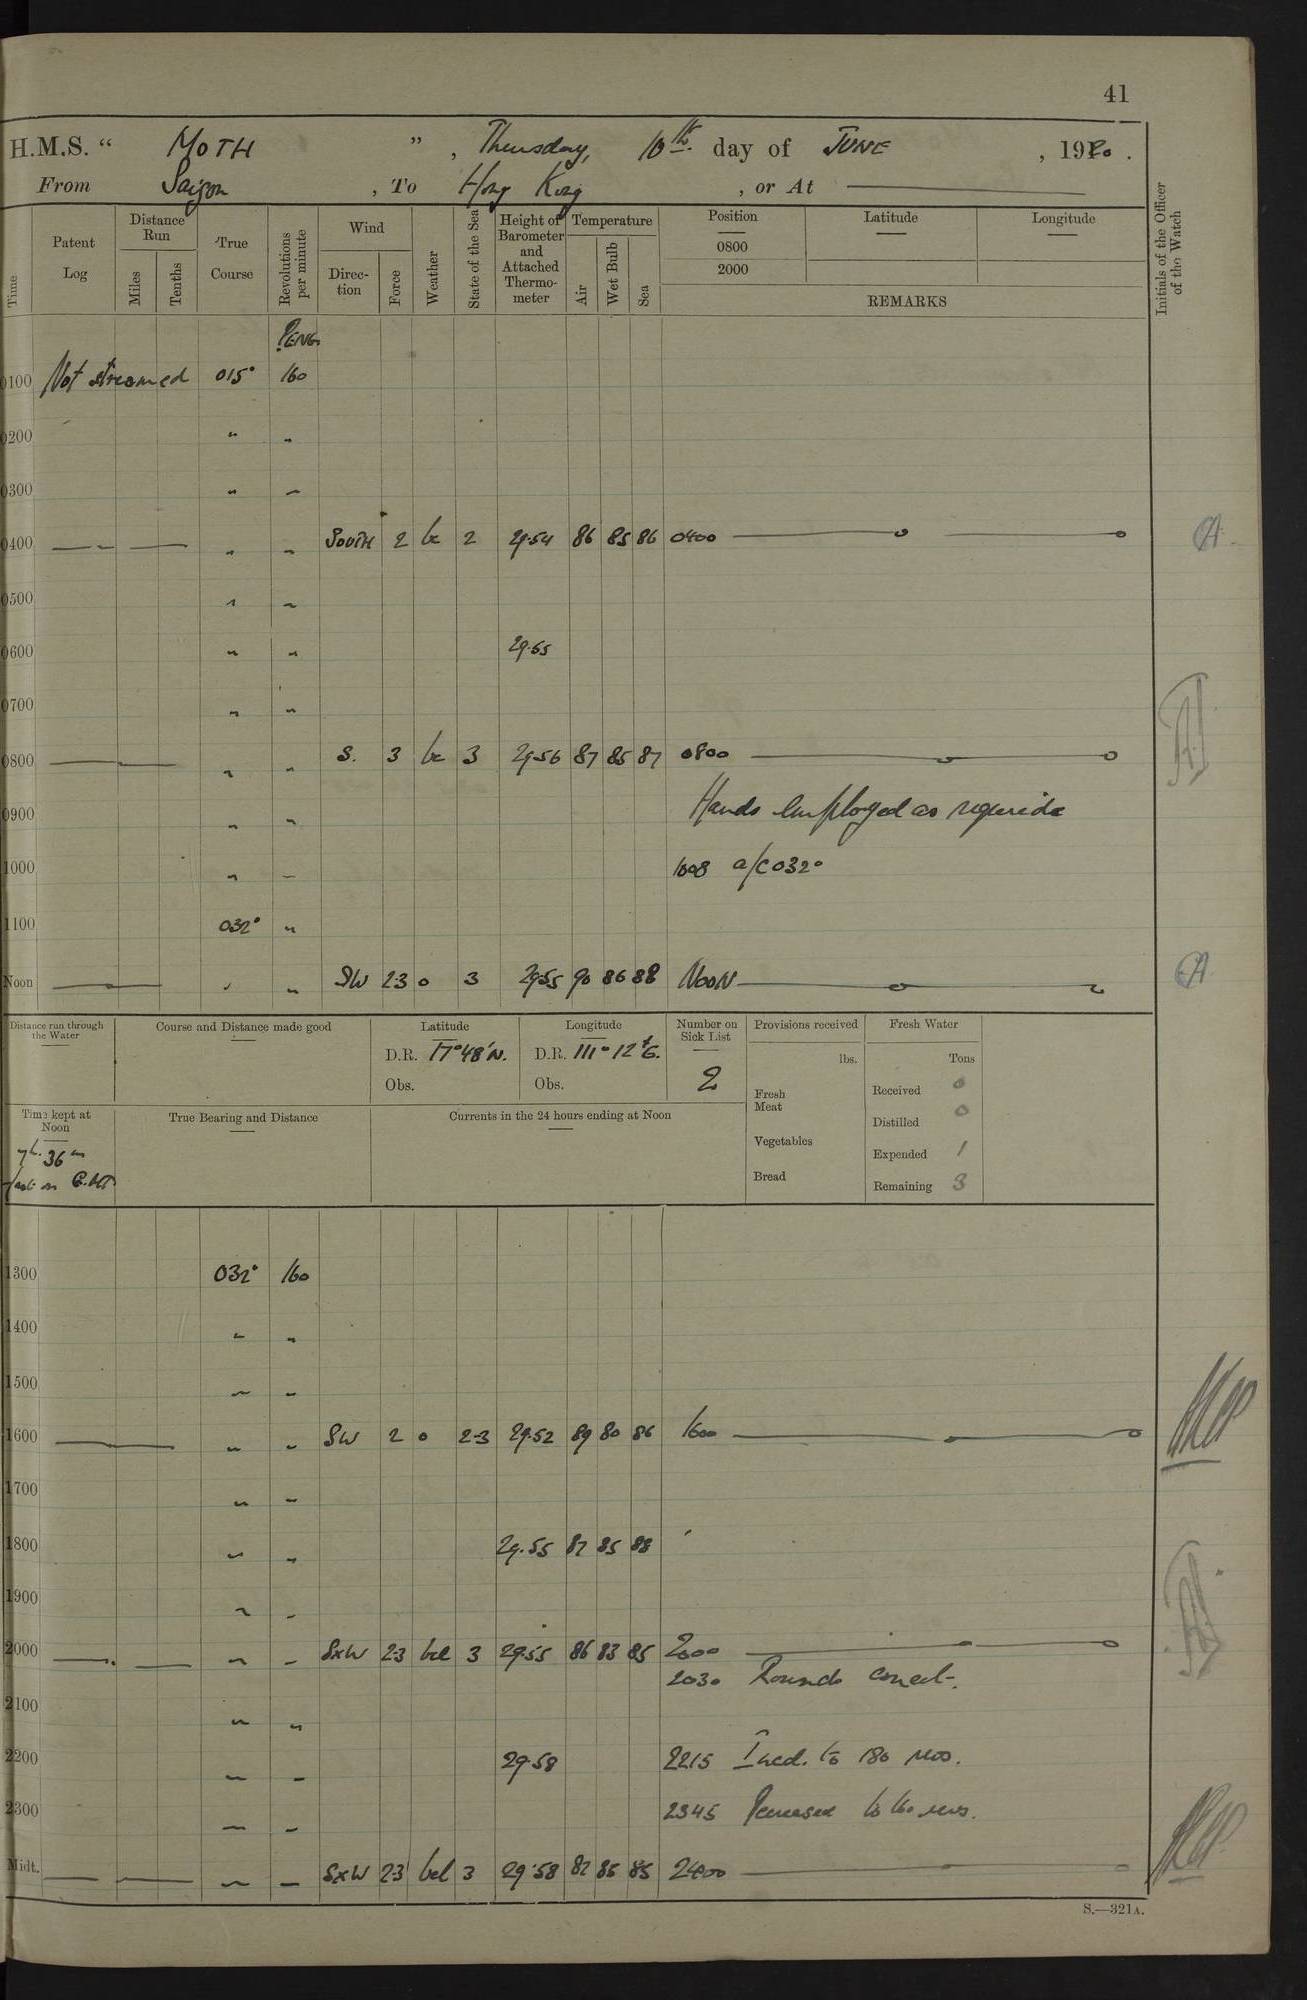 41
H.M.S. “ MOTH ” , Thursday, 10th day of JUNE , 1920 .
From Saigon , To Hong Kong , or At
Time Patent Log Distance Run Miles Tenths True Course Revolutions per minute Wind Direction Force Weather State of the Sea Height of Barometer and Attached Thermometer Temperature Air Wet Bulb Sea Position 0800 2000 Latitude Longitude REMARKS
Initials of the Officer of the Watch
0100 Not streamed 015° 160
0200 " "
0300 " "
0400 " " SOUTH 2 bc 2 29.54 86 85 86 0400
0500 " "
0600 " " 29.55
0700 " "
0800 " " S. 3 bc 3 29.56 87 85 87 0800
0900 " " Hands employed as requisite
1000 " " 1008 a/c 032°
1100 032° "
Noon " " SW 2-3 o 3 29.55 90 86 88 NOON
Distance run through the Water Course and Distance made good Latitude D.R. 17°48'N. Obs. Longitude D.R. 111°12'E. Obs. Number on Sick List 2
Provisions received lbs. Fresh Meat Vegetables Bread
Fresh Water Tons
Received 0
Distilled 0
Expended 1
Remaining 3
Time kept at Noon 7h. 36m fast on G.M.T.
True Bearing and Distance Currents in the 24 hours ending at Noon
1300 032° 160
1400 " "
1500 " "
1600 " " SW 2 o 2-3 29.52 89 80 86 1600
1700 " "
1800 " " 29.55 87 85 88
1900 " "
2000 " " SxW 2-3 bcl 3 29.55 86 83 85 2000
2030 Rounds correct.
2100 " "
2200 " " 29.58 2215 Incd. to 180 revs.
2300 " " 2345 Decreased to 160 revs.
Midt. " " SxW 2-3 bcl 3 29.58 82 85 85 2400
S.—321A.